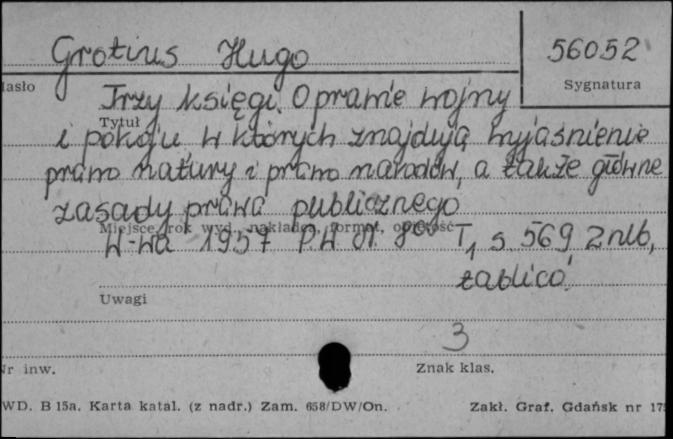 Grotius Hugo
56052
Hasło
Sygnatura
Trzy księgi. O prawie wojny
Tytuł
i pokoju w których znajdują wyjaśnienie
prawo natury i prawo narodów, a także główne
zasady prawa publicznego
Miejsce, rok wyd., nakładca, format, objętość
W-wa 1957 P.W.N. 8° T₁ s 569 2 nlb,
tablica
Uwagi
3
Nr inw.
Znak klas.
WD. B 15a. Karta katal. (z nadr.) Zam. 658/DW/On.
Zakł. Graf. Gdańsk nr 17